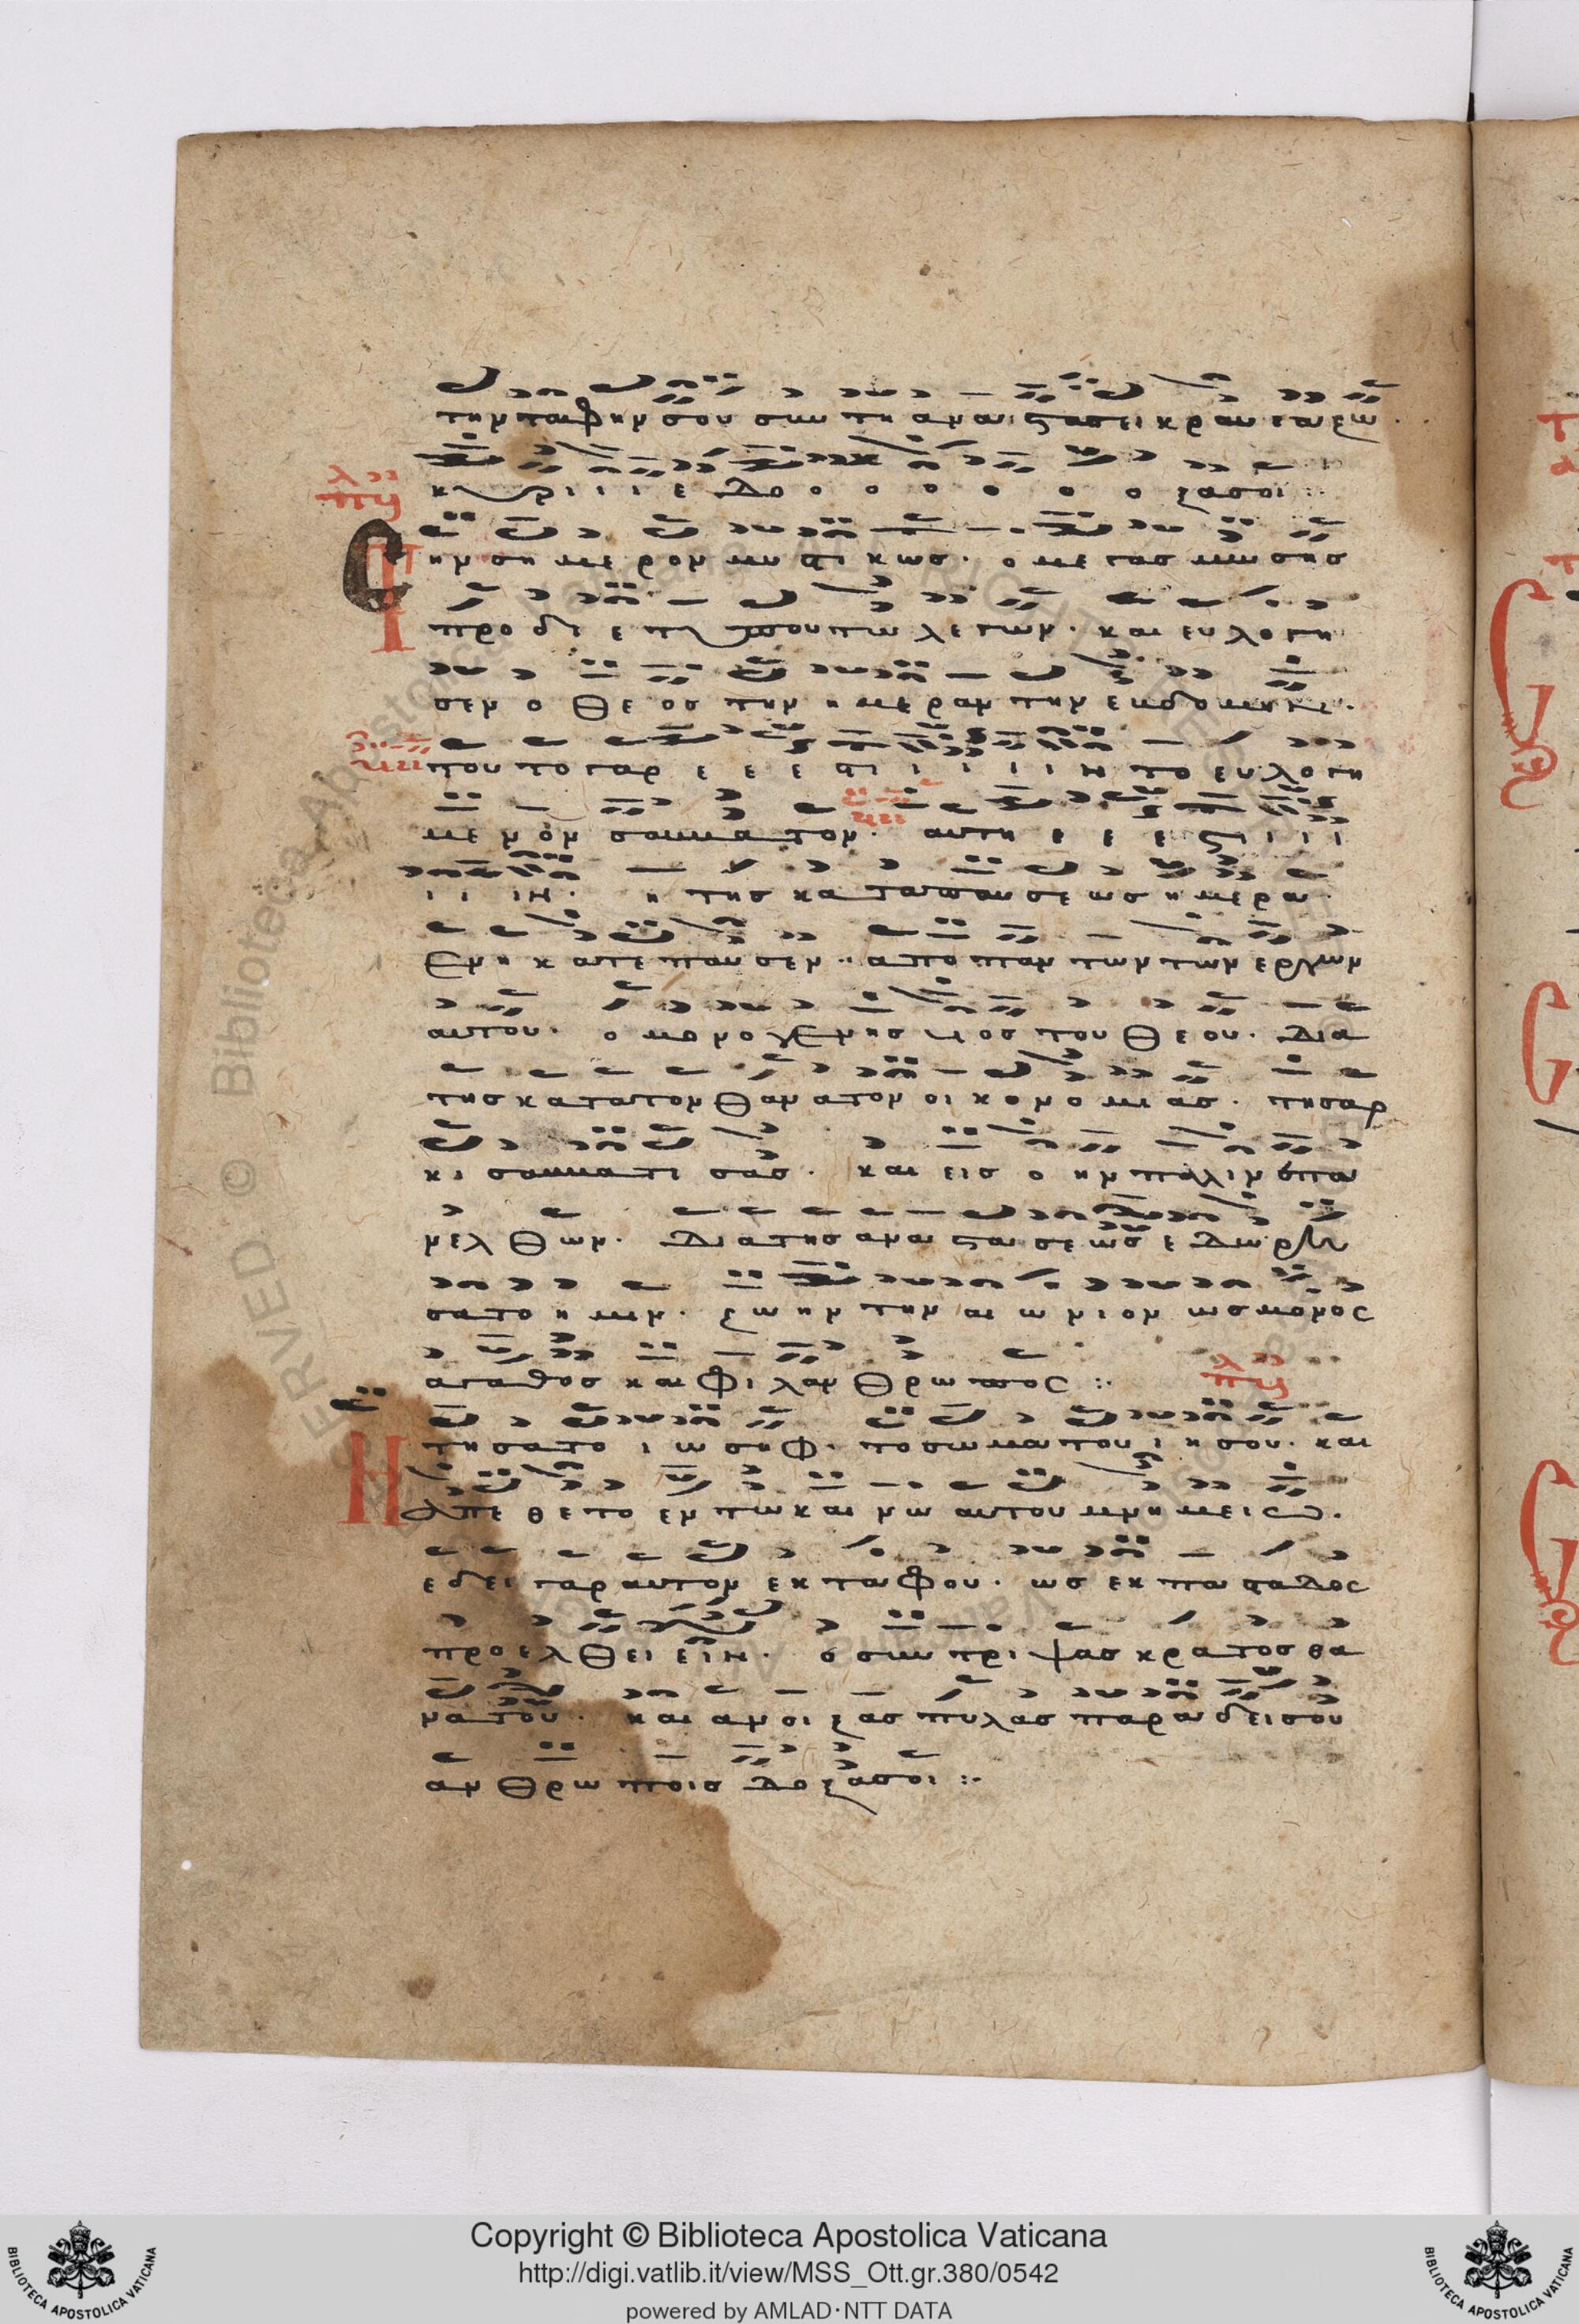 την ταφην σου συν τη αναστασει κραυγαζω
κυριιιε δο ο ο ο ο ο ο ξασοι :
λ πδ
Τ ην σημερον μυστικως · ο μεγας μωσης
προδιετυπουτο λεγων · και ευλογη
σεν ο θεος την ημεραν την εβδομην ·
τουτο γαρ ε ε ε στι ι ι ι ι ιν το ευλογη
μενον σαββατον · αυτη ε ε ε στι ι ι ι
ι ι ιν · η της καταπαυσεως ημερα ·
εν η κατεπαυσεν · απο παντων των εργων
αυτου · ο μονογενης υιος του θεου · δια
της κατα τον θανατον οικονομιας · τη σαρ
κι σαββατισας · και εις ο ην παλιν επα
νελθων · δια της αναστασεως εδωρη
σατο ημιν · ζωην την αιωνιον ως μονος
αγαθος και φιλανθρωπος :·
λ πδ
Η τησατο ιωσηφ · το σωμα του ιησου · και
απεθετο εν τω καινω αυτου μνημειω ·
εδει γαρ αυτον εκ ταφου · ως εκ πασταδος
προελθειειν · ο συντριψας κρατος θα
νατου · και ανοιξας πυλας παραδεισου
ανθρωποις δοξασοι :·
© Biblioteca Apostolica Vaticana
Copyright © Biblioteca Apostolica Vaticana
http://digi.vatlib.it/view/MSS_Ott.gr.380/0542
powered by AMLAD·NTT DATA
BIBLIOTECA APOSTOLICA VATICANA
BIBLIOTECA APOSTOLICA VATICANA